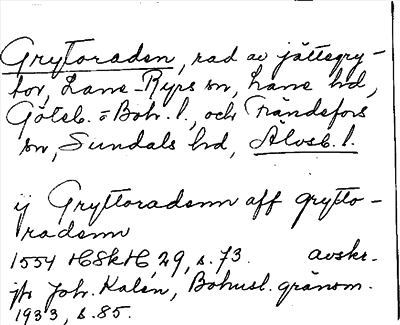 Gryttoraden, rad av jättegry-
tor, Lane-Ryrs sn, Lane hd,
Göteb. o Boh. l., och Frändefors
sn, Sundals hd, Älvsb. l.
ij Gryttoradenn aff grytto-
radenn
1554 HSkH, 29, s. 73. avskr.
jfr Joh. Kalén, Bohusl. gränsm.
1933, s. 85.